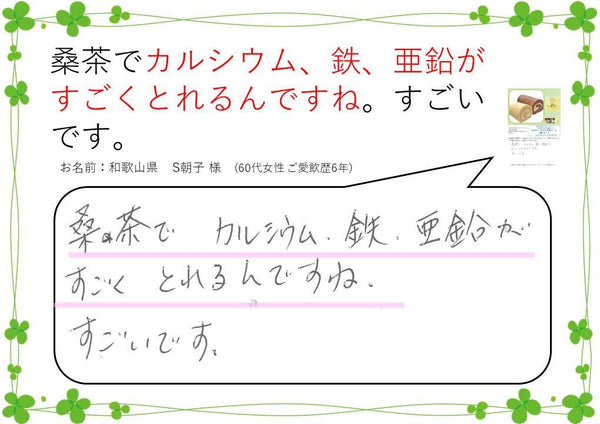 桑茶でカルシウム、鉄、亜鉛が
すごくとれるんですね。すごい
です。
お名前：和歌山県　S朝子 様　(60代女性 ご愛飲歴6年)
桑の茶で カルシウム、鉄、亜鉛が
すごく とれるんですね。
すごいです。